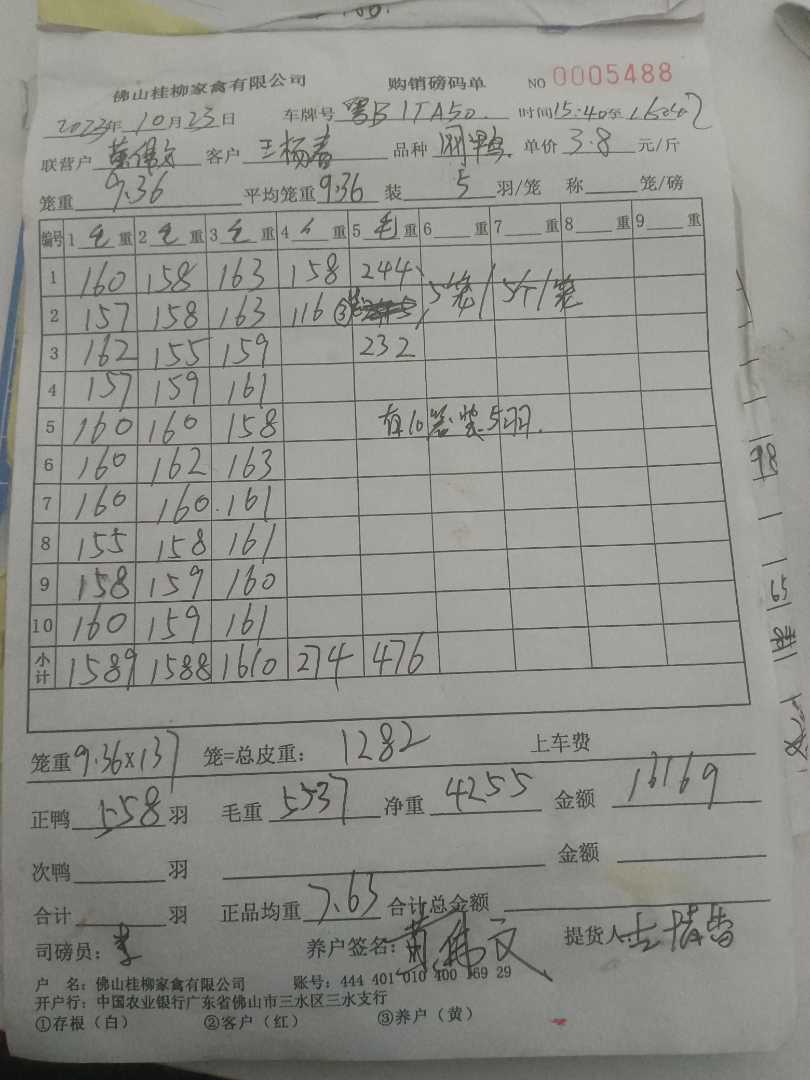 佛山桂柳家禽有限公司 购销磅码单 NO 0005488
2023年10月23日 车牌号 粤B1TA50 时间15:40至
联营户 黄伟文 客户 王杨春 品种 单价 3.8 元/斤
笼重 9.36 平均笼重 9.36 装 5 羽/笼 称 笼/磅
编号 1 毛 重 2 毛 重 3 毛 重 4 重 5 毛 重 6 重 7 重 8 重 9 重
1 160 158 163 158 244
2 157 158 163 116 ③ 5个/笼
3 162 155 159 232
4 157 159 161
5 160 160 158 有10笼装5羽.
6 160 162 163
7 160 160 161
8 155 158 161
9 158 159 160
10 160 159 161
小计 1589 1588 1610 274 476
笼重 9.36×137 笼=总皮重: 1282 上车费
正鸭 558 羽 毛重 5537 净重 4255 金额 16169
次鸭 羽 金额
合计 羽 正品均重 7.63 合计总金额
司磅员: 李 养户签名: 黄伟文 提货人:
户 名: 佛山桂柳家禽有限公司 账号: 444 401 010 400 169 29
开户行: 中国农业银行广东省佛山市三水区三水支行
①存根（白） ②客户（红） ③养户（黄）
98
65